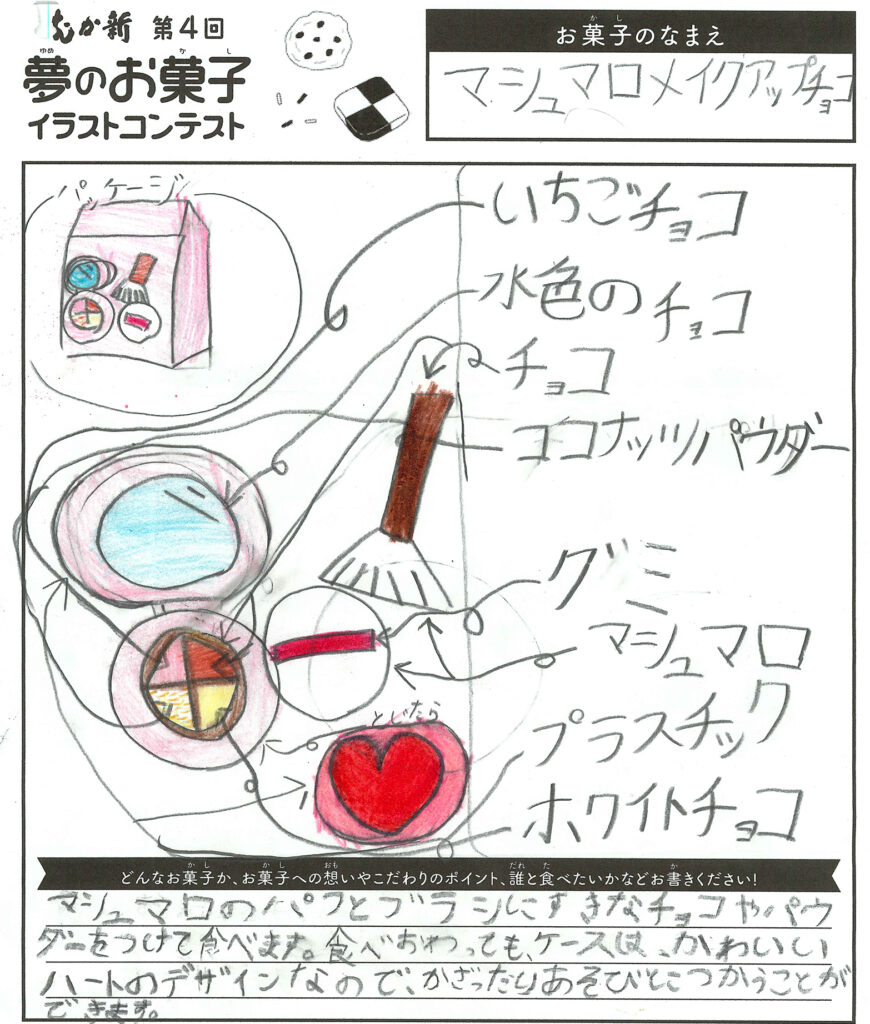 むか新 第4回
夢のお菓子
イラストコンテスト
お菓子のなまえ
マシュマロメイクアップチョコ
パッケージ
いちごチョコ
水色のチョコ
チョコ
ココナッツパウダー
グミ
マシュマロ
とじたら
プラスチック
ホワイトチョコ
どんなお菓子か、お菓子への想いやこだわりのポイント、誰と食べたいかなどお書きください!
マシュマロのパフとブラシにすきなチョコやパウ
ダーをつけて食べます。食べおわっても、ケースは、かわいい
ハートのデザインなので、かざったりあそびとこつかうことが
できます。